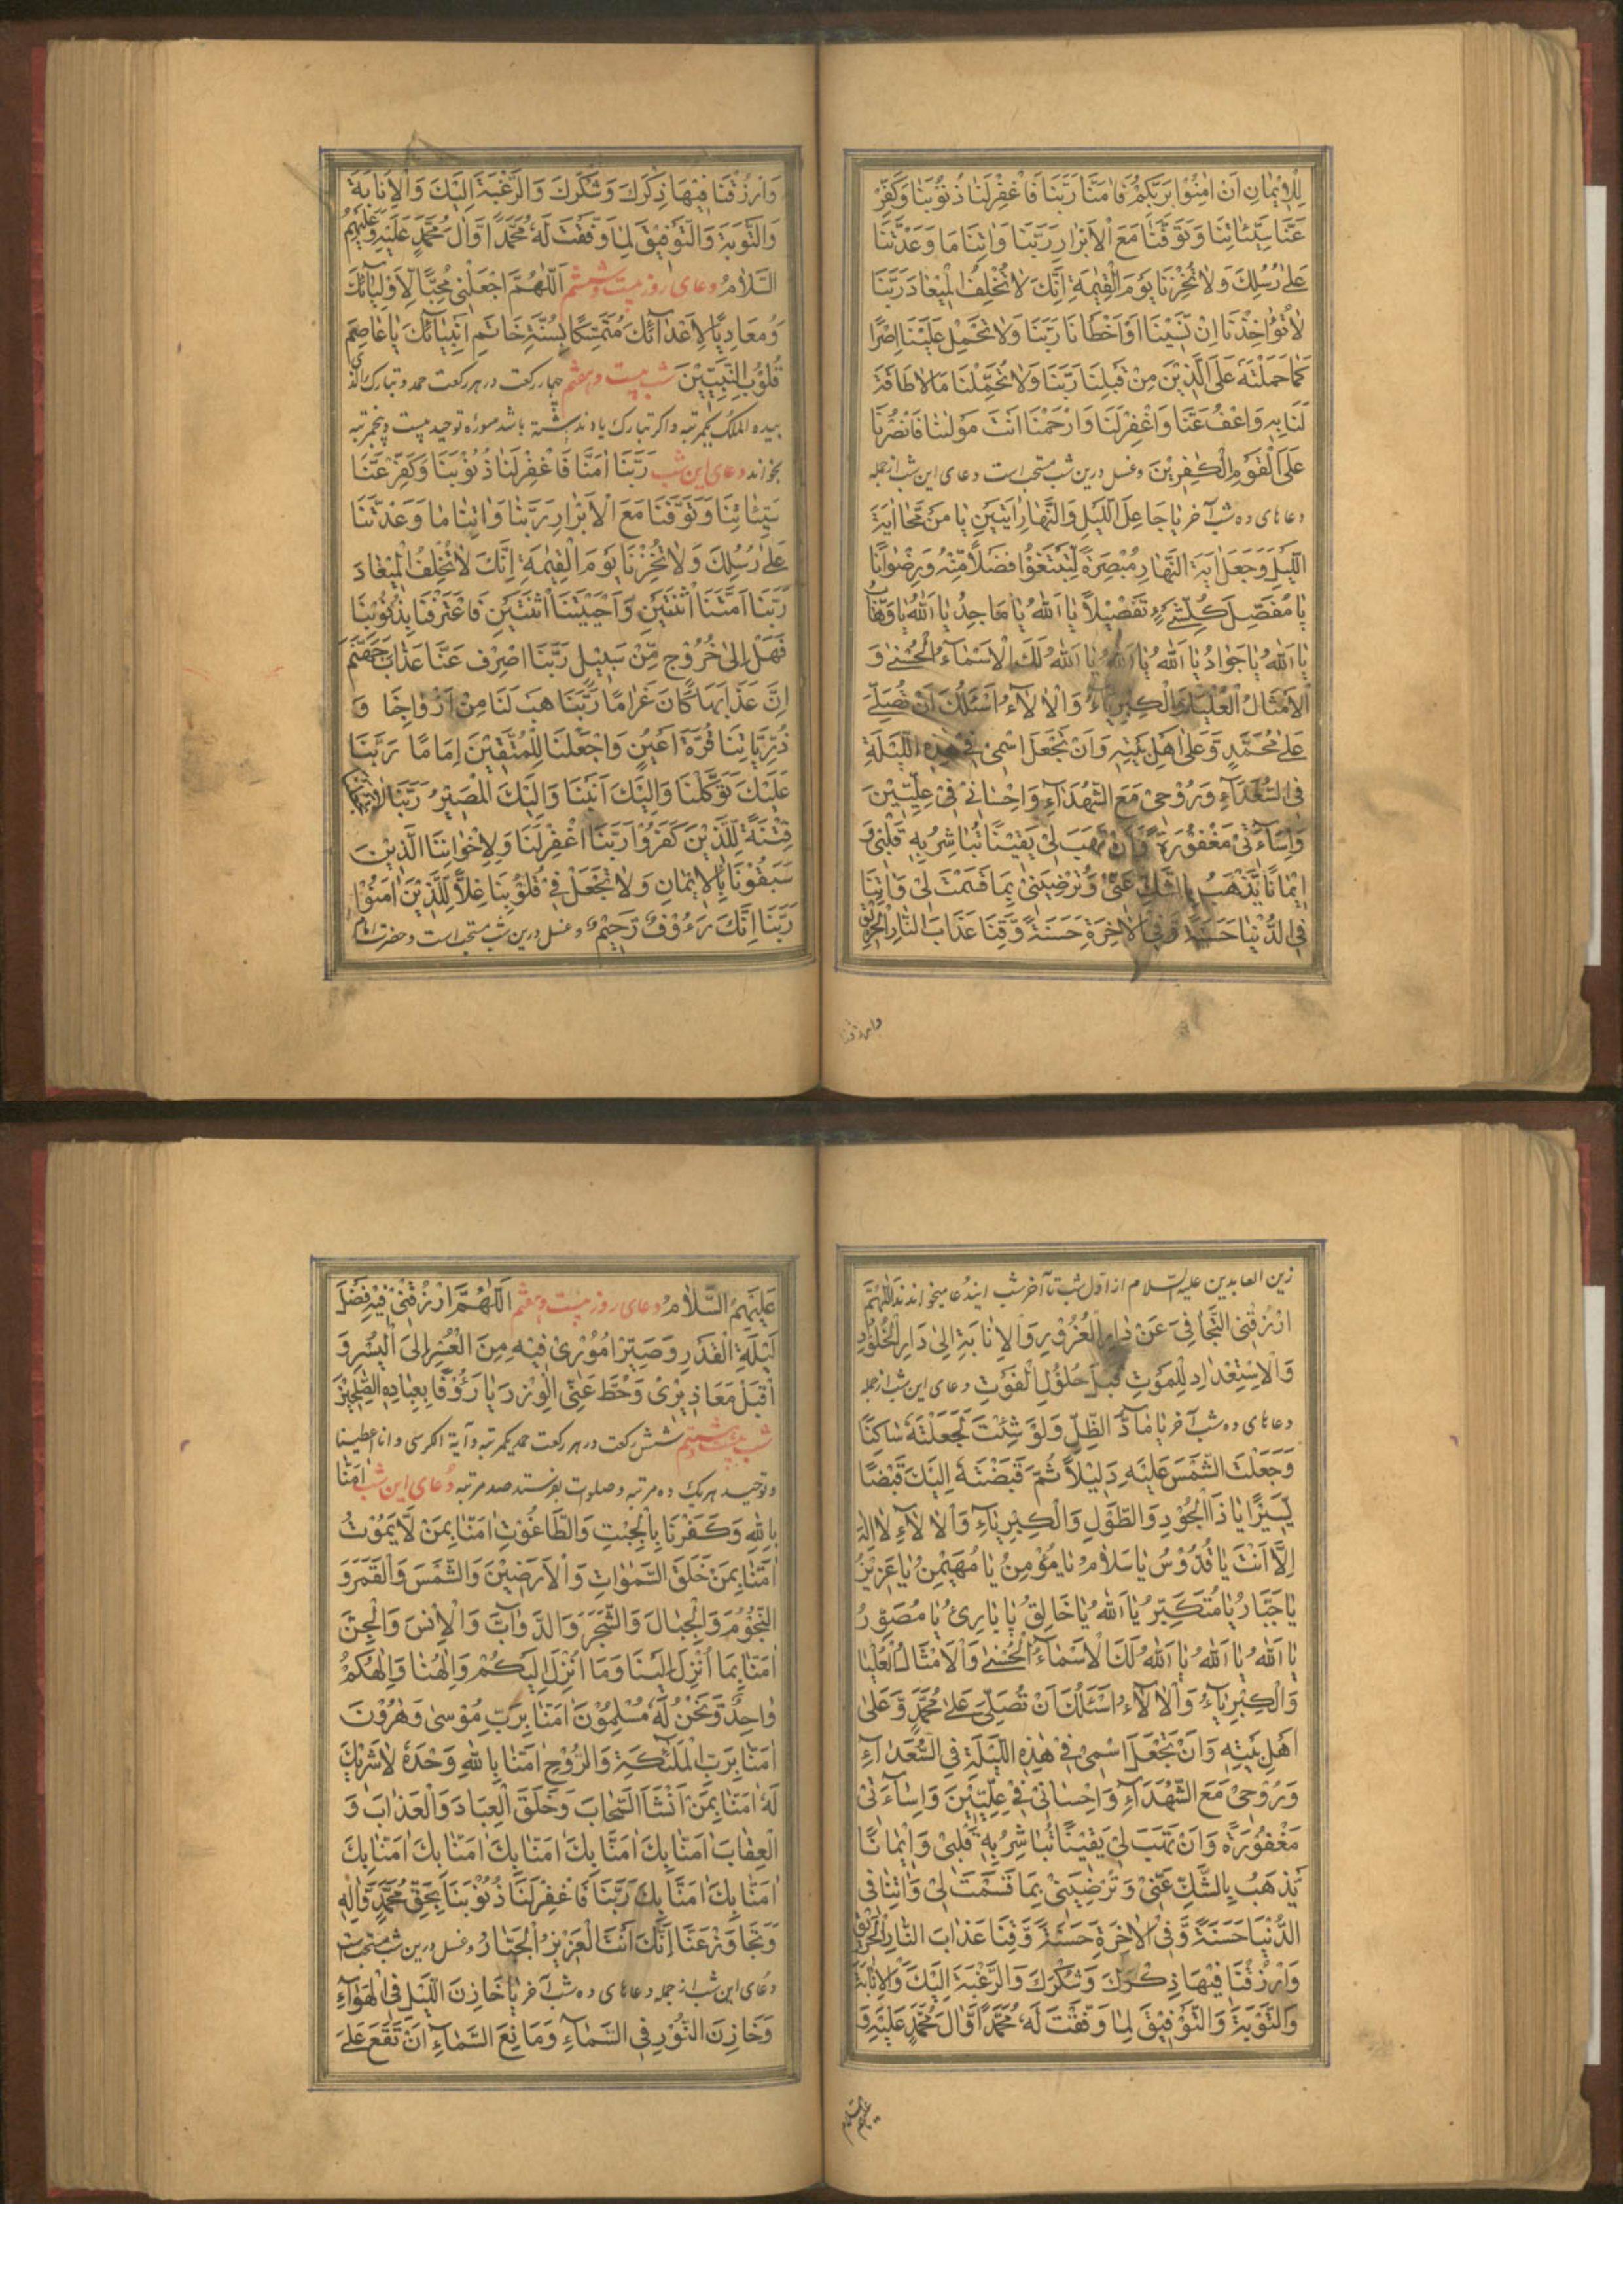 لِلْاِيْمَانِ اَنْ اٰمِنُوْا بِرَبِّكُمْ فَاٰمَنَّا رَبَّنَا فَاغْفِرْلَنَا ذُنُوْبَنَا وَكَفِّرْ
عَنَّا سَيِّئَاتِنَا وَتَوَفَّنَا مَعَ الْاَبْرَارِ رَبَّنَا وَاٰتِنَا مَا وَعَدْتَنَا
عَلٰى رُسُلِكَ وَلَا تُخْزِنَا يَوْمَ الْقِيٰمَةِ اِنَّكَ لَا تُخْلِفُ الْمِيْعَادَ رَبَّنَا
لَا تُؤَاخِذْنَا اِنْ نَسِيْنَا اَوْ اَخْطَاْنَا رَبَّنَا وَلَا تَحْمِلْ عَلَيْنَا اِصْرًا
كَمَا حَمَلْتَهُ عَلَى الَّذِيْنَ مِنْ قَبْلِنَا رَبَّنَا وَلَا تُحَمِّلْنَا مَا لَا طَاقَةَ
لَنَا بِهِ وَاعْفُ عَنَّا وَاغْفِرْلَنَا وَارْحَمْنَا اَنْتَ مَوْلٰنَا فَانْصُرْنَا
عَلَى الْقَوْمِ الْكٰفِرِيْنَ وغسل درین شب مستحب است دعای این شب ازجمله
دعاهای ده شب آخر يَا جَاعِلَ اللَّيْلِ وَالنَّهَارِ اٰيَتَيْنِ يَا مَنْ مَحَا اٰيَةَ
اللَّيْلِ وَجَعَلَ اٰيَةَ النَّهَارِ مُبْصِرَةً لِتَبْتَغُوْا فَضْلًا مِنْهُ وَرِضْوَانًا
يَا مُفَصِّلَ كُلِّ شَيْءٍ تَفْصِيْلًا يَا اَللّٰهُ يَا مَاجِدُ يَا اَللّٰهُ يَا وَهَّابُ
يَا اَللّٰهُ يَا جَوَادُ يَا اَللّٰهُ يَا اَللّٰهُ يَا اَللّٰهُ لَكَ الْاَسْمَاءُ الْحُسْنٰى وَ
الْاَمْثَالُ الْعُلْيَا وَالْكِبْرِيَاءُ وَالْاٰلَاءُ اَسْئَلُكَ اَنْ تُصَلِّيَ
عَلٰى مُحَمَّدٍ وَّعَلٰى اَهْلِ بَيْتِهِ وَاَنْ تَجْعَلَ اسْمِيْ فِيْ هٰذِهِ اللَّيْلَةِ
فِي السُّعَدَاءِ وَرُوْحِيْ مَعَ الشُّهَدَاءِ وَاِحْسَانِيْ فِيْ عِلِّيِّيْنَ
وَاِسَاءَتِيْ مَغْفُوْرَةً وَاَنْ تَهَبَ لِيْ يَقِيْنًا تُبَاشِرُ بِهِ قَلْبِيْ وَ
اِيْمَانًا يَّذْهَبُ بِالشَّكِّ عَنِّيْ وَتُرْضِيَنِيْ بِمَا قَسَمْتَ لِيْ وَاٰتِنَا
فِي الدُّنْيَا حَسَنَةً وَّفِي الْاٰخِرَةِ حَسَنَةً وَّقِنَا عَذَابَ النَّارِ الْحَرِيْقِ
وارزقنا
وَارْزُقْنَا فِيْهَا ذِكْرَكَ وَشُكْرَكَ وَالرَّغْبَةَ اِلَيْكَ وَالْاِنَابَةَ
وَالتَّوْبَةَ وَالتَّوْفِيْقَ لِمَا وَفَّقْتَ لَهُ مُحَمَّدًا وَّاٰلَ مُحَمَّدٍ عَلَيْهِ وَعَلَيْهِمُ
السَّلَامُ دعای روز بیست وششم اَللّٰهُمَّ اجْعَلْنِيْ مُحِبًّا لِاَوْلِيَائِكَ
وَمُعَادِيًا لِاَعْدَائِكَ مُتَمَسِّكًا بِسُنَّةِ خَاتَمِ اَنْبِيَائِكَ يَا عَاصِمَ
قُلُوْبِ النَّبِيِّيْنَ شب بیست وهفتم چهار رکعت در هر رکعت حمد و تبارک الذی
بیده الملک یکمرتبه واکر تبارک یاد نداشته باشد سوره توحید بیست وپنجمرتبه
بخواند دعای این شب رَبَّنَا اٰمَنَّا فَاغْفِرْلَنَا ذُنُوْبَنَا وَكَفِّرْ عَنَّا
سَيِّئَاتِنَا وَتَوَفَّنَا مَعَ الْاَبْرَارِ رَبَّنَا وَاٰتِنَا مَا وَعَدْتَنَا
عَلٰى رُسُلِكَ وَلَا تُخْزِنَا يَوْمَ الْقِيٰمَةِ اِنَّكَ لَا تُخْلِفُ الْمِيْعَادَ
رَبَّنَا اَمَتَّنَا اثْنَتَيْنِ وَاَحْيَيْتَنَا اثْنَتَيْنِ فَاعْتَرَفْنَا بِذُنُوْبِنَا
فَهَلْ اِلٰى خُرُوْجٍ مِّنْ سَبِيْلٍ رَبَّنَا اصْرِفْ عَنَّا عَذَابَ جَهَنَّمَ
اِنَّ عَذَابَهَا كَانَ غَرَامًا رَبَّنَا هَبْ لَنَا مِنْ اَزْوَاجِنَا وَ
ذُرِّيَّاتِنَا قُرَّةَ اَعْيُنٍ وَاجْعَلْنَا لِلْمُتَّقِيْنَ اِمَامًا رَبَّنَا
عَلَيْكَ تَوَكَّلْنَا وَاِلَيْكَ اَنَبْنَا وَاِلَيْكَ الْمَصِيْرُ رَبَّنَا لَا تَجْعَلْنَا
فِتْنَةً لِلَّذِيْنَ كَفَرُوْا رَبَّنَا اغْفِرْلَنَا وَلِاِخْوَانِنَا الَّذِيْنَ
سَبَقُوْنَا بِالْاِيْمَانِ وَلَا تَجْعَلْ فِيْ قُلُوْبِنَا غِلًّا لِلَّذِيْنَ اٰمَنُوْا
رَبَّنَا اِنَّكَ رَءُوْفٌ رَحِيْمٌ وغسل درین شب مستحب است وحضرت امام
زین العابدین علیه السلام از اول شب تا آخر شب ایندعا میخواندند اَللّٰهُمَّ
ارْزُقْنِي التَّجَافِيَ عَنْ دَارِ الْغُرُوْرِ وَالْاِنَابَةِ اِلٰى دَارِ الْخُلُوْدِ
وَالْاِسْتِعْدَادِ لِلْمَوْتِ قَبْلَ حُلُوْلِ الْفَوْتِ دعای این شب ازجمله
دعاهای ده شب آخر يَا مَادَّ الظِّلِّ وَلَوْ شِئْتَ لَجَعَلْتَهُ سَاكِنًا
وَجَعَلْتَ الشَّمْسَ عَلَيْهِ دَلِيْلًا ثُمَّ قَبَضْتَهُ اِلَيْكَ قَبْضًا
يَسِيْرًا يَا ذَا الْجُوْدِ وَالطَّوْلِ وَالْكِبْرِيَاءِ وَالْاٰلَاءِ لَا اِلٰهَ
اِلَّا اَنْتَ يَا قُدُّوْسُ يَا سَلَامُ يَا مُؤْمِنُ يَا مُهَيْمِنُ يَا عَزِيْزُ
يَا جَبَّارُ يَا مُتَكَبِّرُ يَا اَللّٰهُ يَا خَالِقُ يَا بَارِئُ يَا مُصَوِّرُ
يَا اَللّٰهُ يَا اَللّٰهُ يَا اَللّٰهُ لَكَ الْاَسْمَاءُ الْحُسْنٰى وَالْاَمْثَالُ الْعُلْيَا
وَالْكِبْرِيَاءُ وَالْاٰلَاءُ اَسْئَلُكَ اَنْ تُصَلِّيَ عَلٰى مُحَمَّدٍ وَّعَلٰى
اَهْلِ بَيْتِهِ وَاَنْ تَجْعَلَ اسْمِيْ فِيْ هٰذِهِ اللَّيْلَةِ فِي السُّعَدَاءِ
وَرُوْحِيْ مَعَ الشُّهَدَاءِ وَاِحْسَانِيْ فِيْ عِلِّيِّيْنَ وَاِسَاءَتِيْ
مَغْفُوْرَةً وَاَنْ تَهَبَ لِيْ يَقِيْنًا تُبَاشِرُ بِهِ قَلْبِيْ وَاِيْمَانًا
يَذْهَبُ بِالشَّكِّ عَنِّيْ وَتُرْضِيَنِيْ بِمَا قَسَمْتَ لِيْ وَاٰتِنَا فِي
الدُّنْيَا حَسَنَةً وَّفِي الْاٰخِرَةِ حَسَنَةً وَّقِنَا عَذَابَ النَّارِ الْحَرِيْقِ
وَارْزُقْنَا فِيْهَا ذِكْرَكَ وَشُكْرَكَ وَالرَّغْبَةَ اِلَيْكَ وَالْاِنَابَةَ
وَالتَّوْبَةَ وَالتَّوْفِيْقَ لِمَا وَفَّقْتَ لَهُ مُحَمَّدًا وَّاٰلَ مُحَمَّدٍ عَلَيْهِ وَ
علیهم السلام
عَلَيْهِمُ السَّلَامُ دعای روز بیست وهفتم اَللّٰهُمَّ ارْزُقْنِيْ فِيْهِ فَضْلَ
لَيْلَةِ الْقَدْرِ وَصَيِّرْ اُمُوْرِيْ فِيْهِ مِنَ الْعُسْرِ اِلَى الْيُسْرِ وَ
اقْبَلْ مَعَاذِيْرِيْ وَحُطَّ عَنِّي الْوِزْرَ يَا رَؤُفًا بِعِبَادِهِ الصّٰلِحِيْنَ
شب بیست وهشتم شش رکعت در هر رکعت حمد یکمرتبه وآیة الکرسی وانا اعطینا
وتوحید هریک ده مرتبه وصلوات بفرستد صد مرتبه دعای این شب اٰمَنَّا
بِاللّٰهِ وَكَفَرْنَا بِالْجِبْتِ وَالطَّاغُوْتِ اٰمَنَّا بِمَنْ لَا يَمُوْتُ
اٰمَنَّا بِمَنْ خَلَقَ السَّمٰوَاتِ وَالْاَرَضِيْنَ وَالشَّمْسَ وَالْقَمَرَ وَ
النُّجُوْمَ وَالْجِبَالَ وَالشَّجَرَ وَالدَّوَابَّ وَالْاِنْسَ وَالْجِنَّ
اٰمَنَّا بِمَا اُنْزِلَ اِلَيْنَا وَمَا اُنْزِلَ اِلَيْكُمْ وَاِلٰهُنَا وَاِلٰهُكُمْ
وَاحِدٌ وَنَحْنُ لَهُ مُسْلِمُوْنَ اٰمَنَّا بِرَبِّ مُوْسٰى وَهٰرُوْنَ
اٰمَنَّا بِرَبِّ الْمَلٰئِكَةِ وَالرُّوْحِ اٰمَنَّا بِاللّٰهِ وَحْدَهُ لَا شَرِيْكَ
لَهُ اٰمَنَّا بِمَنْ اَنْشَاَ السَّحَابَ وَخَلَقَ الْعِبَادَ وَالْعَذَابَ وَ
الْعِقَابَ اٰمَنَّا بِكَ اٰمَنَّا بِكَ اٰمَنَّا بِكَ اٰمَنَّا بِكَ اٰمَنَّا بِكَ
اٰمَنَّا بِكَ اٰمَنَّا بِكَ رَبَّنَا فَاغْفِرْلَنَا ذُنُوْبَنَا بِحَقِّ مُحَمَّدٍ وَّاٰلِهِ
وَتَجَاوَزْ عَنَّا اِنَّكَ اَنْتَ الْعَزِيْزُ الْجَبَّارُ وغسل درین شب مستحب است
دعای این شب از جمله دعاهای ده شب آخر يَا خَازِنَ اللَّيْلِ فِي الْهَوَاءِ
وَخَازِنَ النُّوْرِ فِي السَّمَاءِ وَمَانِعَ السَّمَاءِ اَنْ تَقَعَ عَلَى